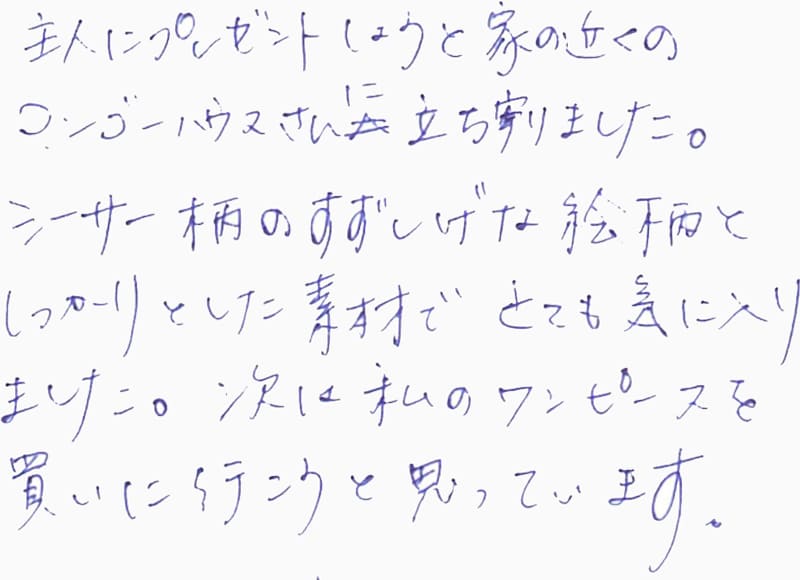 主人にプレゼントしようと家の近くの
コンゴーハウスさんに立ち寄りました。
シーサー柄のすずしげな絵柄と
しっかりとした素材でとても気に入り
ました。次は私のワンピースを
買いに行こうと思っています。